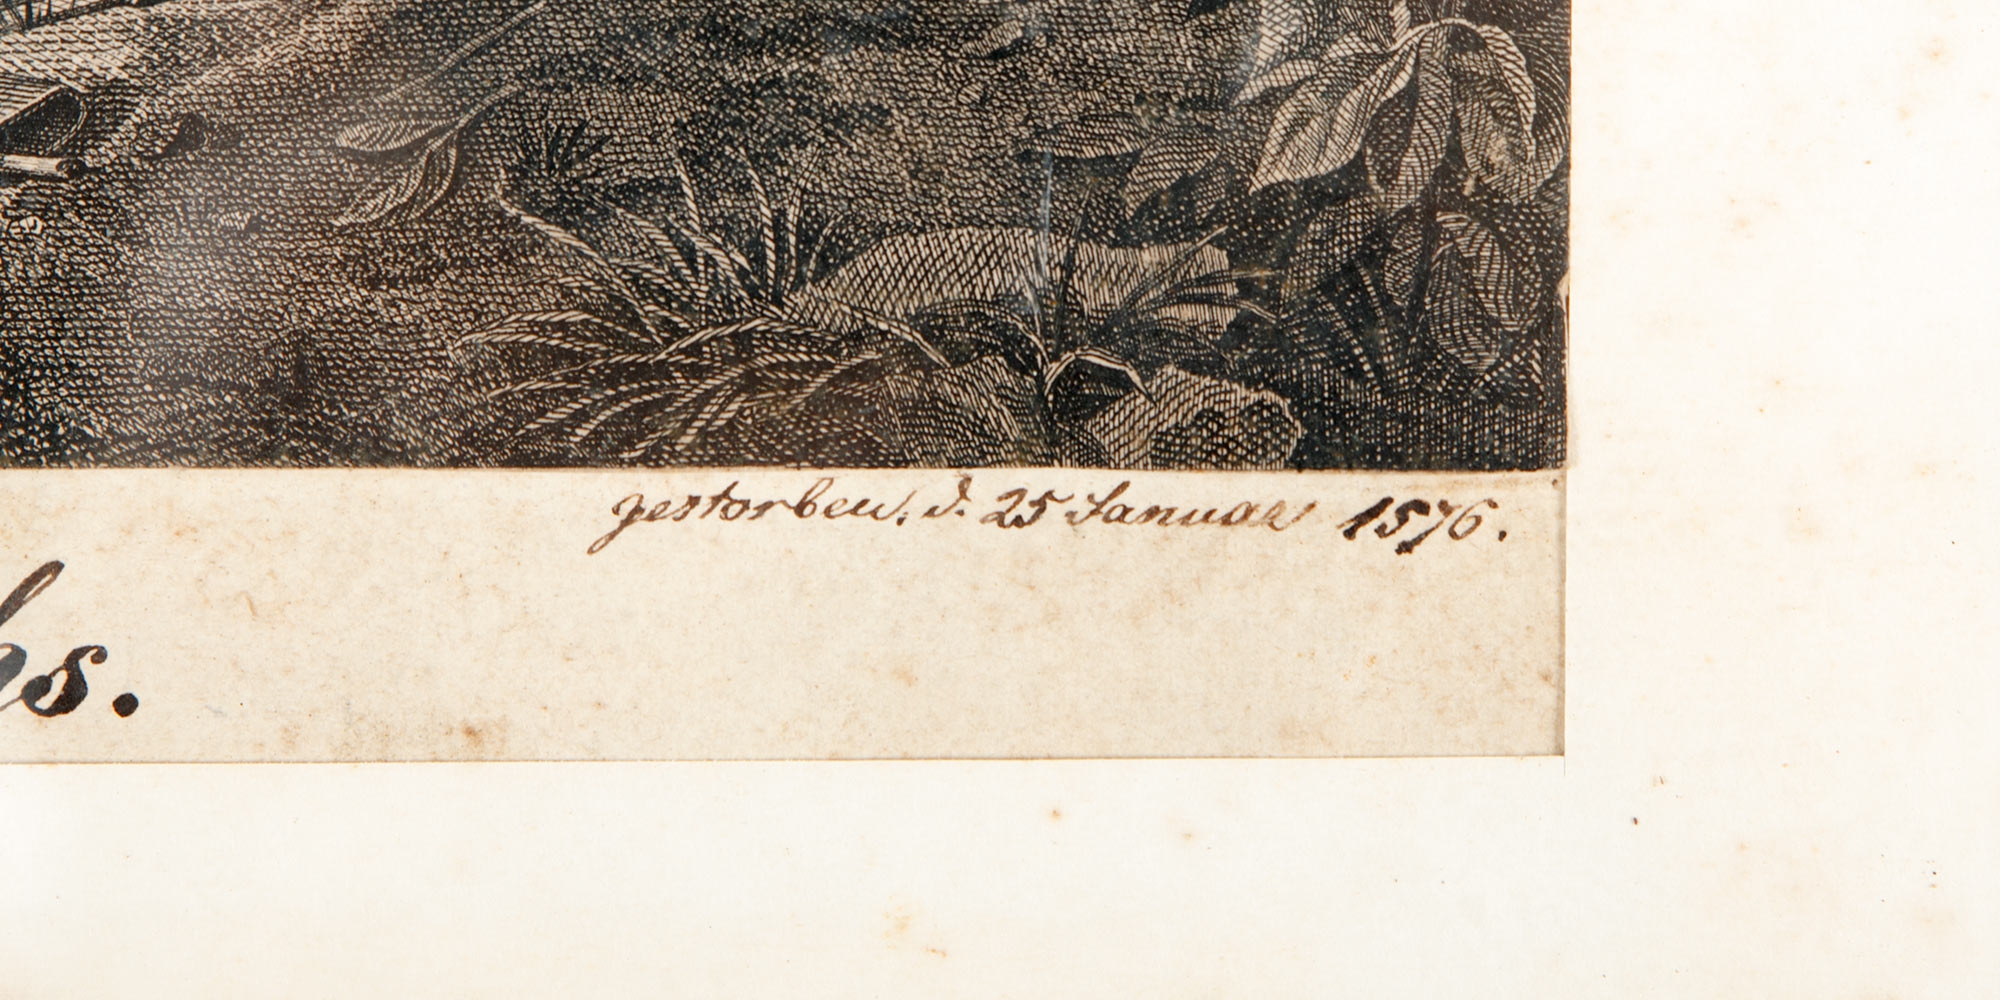 gestorben, d. 25 Januar 1576.
hs.